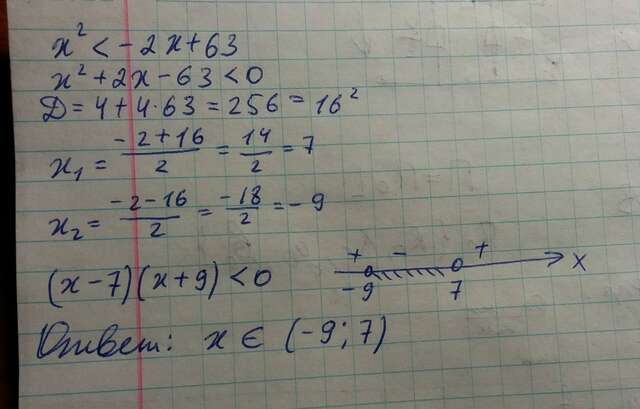 x² < -2x+63
x²+2x-63<0
D=4+4·63=256=16²
x₁ = (-2+16)/2 = 14/2 = 7
x₂ = (-2-16)/2 = -18/2 = -9
(x-7)(x+9)<0
+ - + x
-9 7
Ответ: x ∈ (-9; 7)